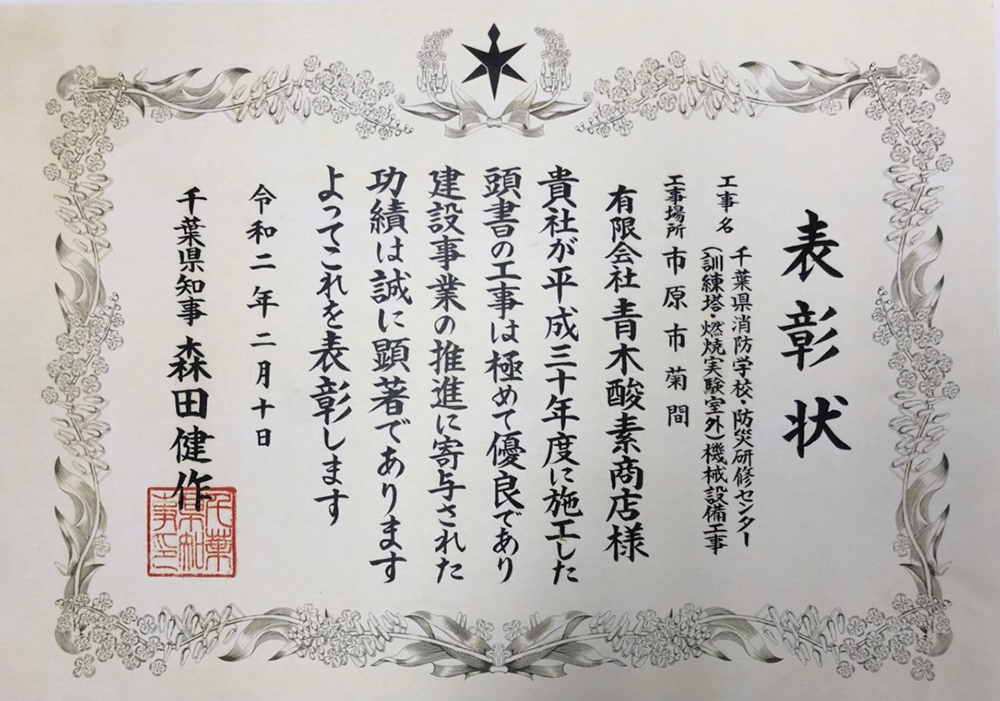 表彰状
工事名 千葉県消防学校・防災研修センター
(訓練塔・燃焼実験室外)機械設備工事
工事場所 市原市菊間
有限会社 青木酸素商店様
貴社が平成三十年度に施工した
頭書の工事は極めて優良であり
建設事業の推進に寄与された
功績は誠に顕著であります
よってこれを表彰します
令和二年二月十日
千葉県知事 森田健作
千葉
県知
事印